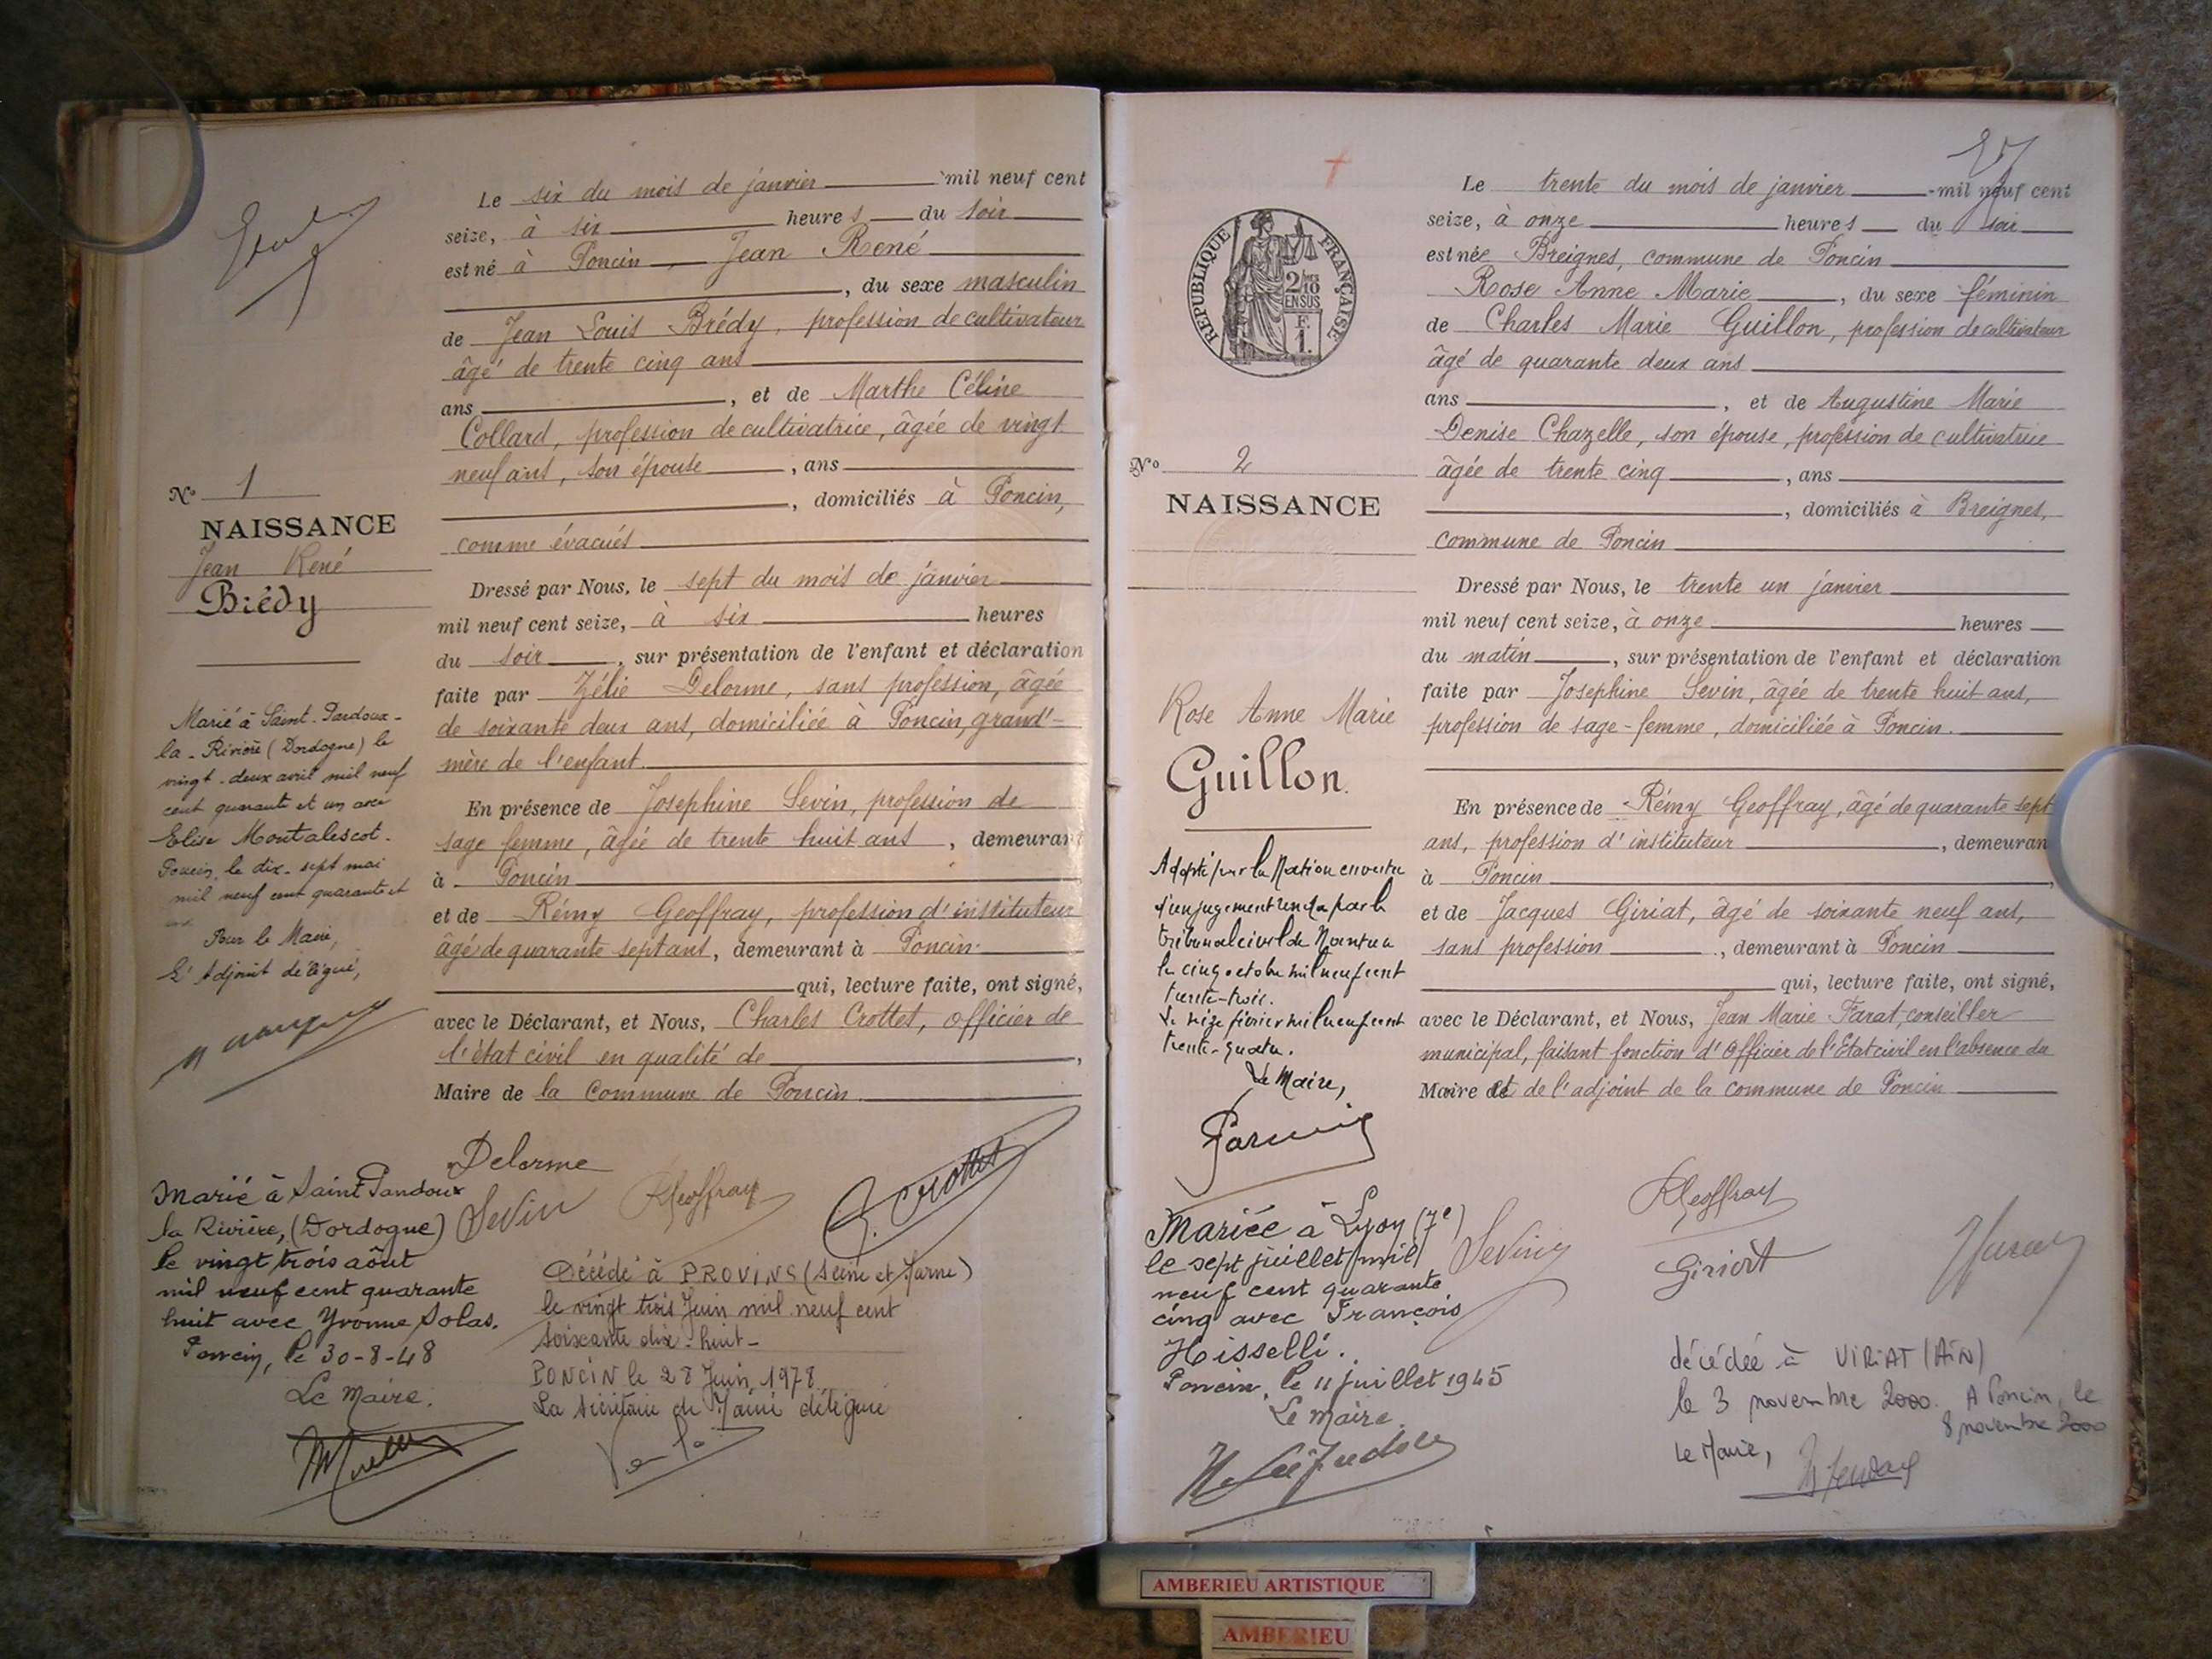 Le six du mois de janvier mil neuf cent
seize, à six heures du soir
est né à Poncin, Jean René
, du sexe masculin
de Jean Louis Brédy, profession de cultivateur
âgé de trente cinq ans
ans , et de Marthe Céline
Collard, profession de cultivatrice, âgée de vingt
neuf ans, son épouse , ans
, domiciliés à Poncin,
comme évacués
Dressé par Nous, le sept du mois de janvier
mil neuf cent seize, à six heures
du soir , sur présentation de l'enfant et déclaration
faite par Zélie Delorme, sans profession, âgée
de soixante deux ans, domiciliée à Poncin, grand'-
mère de l'enfant.
En présence de Josephine Sevin, profession de
sage femme, âgée de trente huit ans , demeurant
à Poncin
et de Rémy Geoffray, profession d'instituteur
âgé de quarante sept ans, demeurant à Poncin
qui, lecture faite, ont signé,
avec le Déclarant, et Nous, Charles Crottet, officier de
l'état civil en qualité de ,
Maire de la Commune de Poncin
Nº 1
NAISSANCE
Jean René
Brédy
Marié à Saint-Pardoux-
la-Rivière (Dordogne) le
vingt-deux avril mil neuf
cent quarante et un avec
Elise Montalescot.
Poncin, le dix-sept mai
mil neuf cent quarante et
un
Pour le Maire,
L'Adjoint délégué,
Delorme
Sevin
RGeoffray
C. Crottet
Marié à Saint Pandoux
la Rivière, (Dordogne)
le vingt trois aôut
mil neuf cent quarante
huit avec Yvonne Solas.
Poncin, le 30-8-48
Le Maire.
Décédé à PROVINS (Seine et Marne)
le vingt trois Juin mil neuf cent
soixante dix-huit-
PONCIN le 28 Juin 1978
La Secrétaire de Mairie déléguée
Le trente du mois de janvier mil neuf cent
seize, à onze heures du soir
est née Breignes, commune de Poncin
Rose Anne Marie , du sexe féminin
de Charles Marie Guillon, profession de cultivateur
âgé de quarante deux ans
ans , et de Augustine Marie
Denise Chazelle, son épouse, profession de cultivatrice
âgée de trente cinq , ans
, domiciliés à Breignes,
commune de Poncin
Dressé par Nous, le trente un janvier
mil neuf cent seize, à onze heures
du matin , sur présentation de l'enfant et déclaration
faite par Josephine Sevin, âgée de trente huit ans,
profession de sage-femme, domiciliée à Poncin.
En présence de Rémy Geoffray, âgé de quarante sept
ans, profession d'instituteur , demeuran
à Poncin ,
et de Jacques Giriat, âgé de soixante neuf ans,
sans profession , demeurant à Poncin
qui, lecture faite, ont signé,
avec le Déclarant, et Nous, Jean Marie Farat, conseiller
municipal, faisant fonction d'Officier de l'Etat civil en l'absence du
Maire et de l'adjoint de la commune de Poncin
REPUBLIQUE FRANÇAISE
2/10
EN SUS
F.
1.
Nº 2
NAISSANCE
Rose Anne Marie
Guillon.
Adopté par la Nation en vertu
d'un jugement rendu par le
tribunal civil de Nantua
le cinq octobre mil neuf cent
trente-trois.
Le seize février mil neuf cent
trente-quatre.
Le Maire,
Mariée à Lyon (7e)
le sept juillet mil
neuf cent quarante
cinq avec François
Hisselli.
Poncin, le 11 juillet 1945
Le Maire.
Sevin
RGeoffray
Giriat
décédée à VIRIAT (AIN)
le 3 novembre 2000. A Poncin, le
8 novembre 2000
Le Maire,
AMBERIEU ARTISTIQUE
AMBERIEU